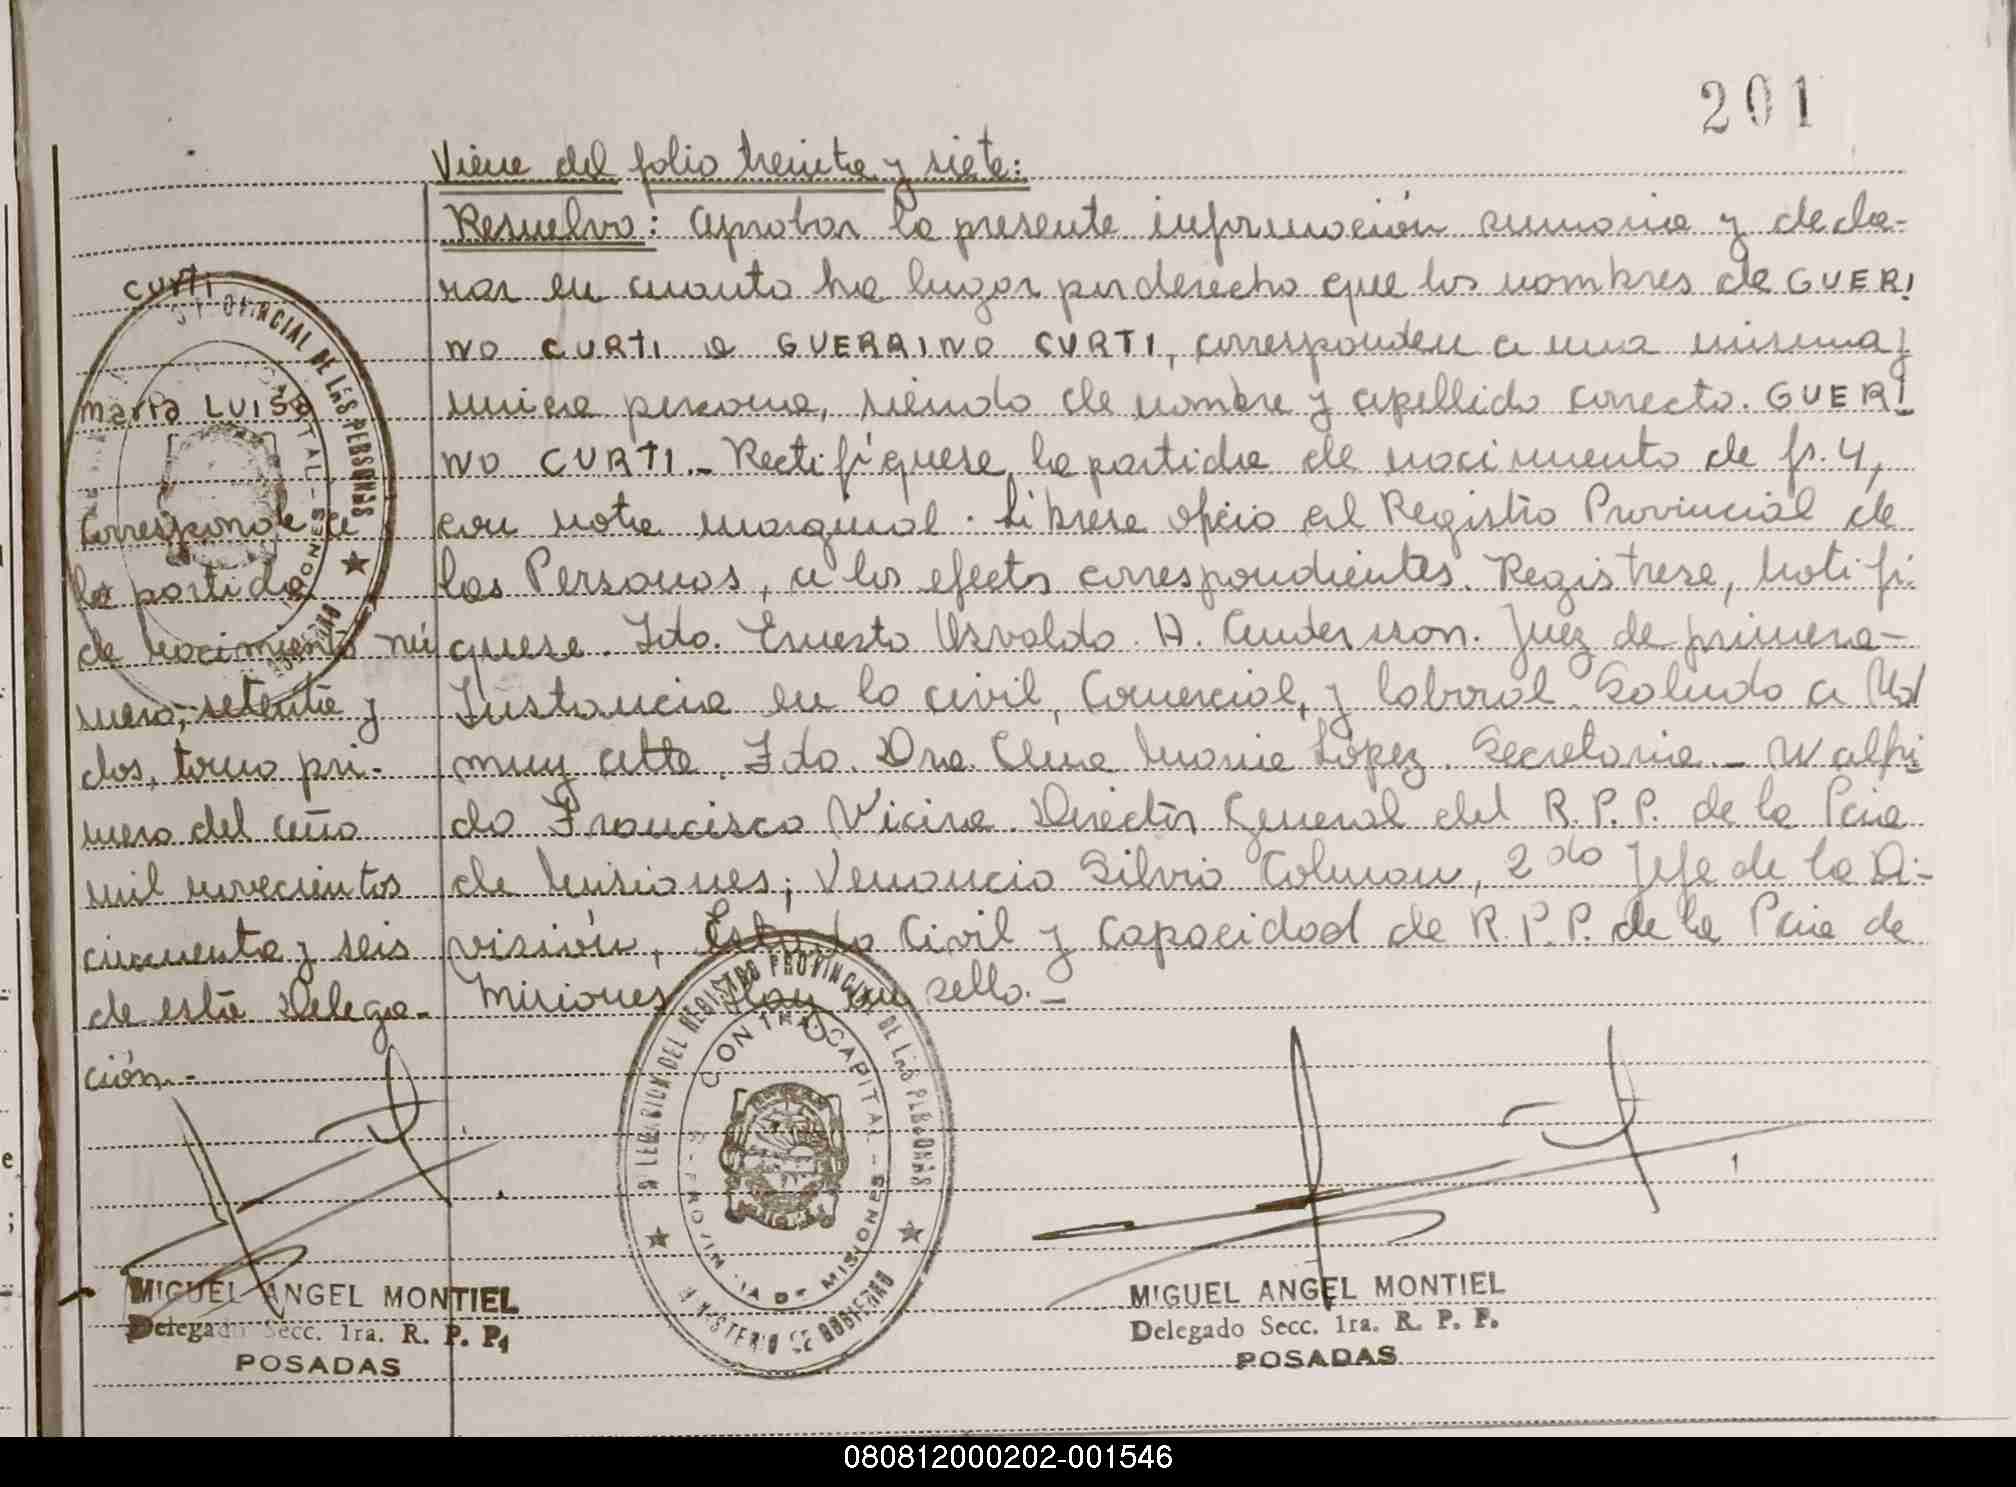 201
Viene del folio treinta y siete:
Resuelvo: Aprobar la presente información sumaria y decla-
rar en cuanto ha lugar por derecho que los nombres de GUERI
NO CURTI o GUERRINO CURTI, corresponden a una misma y
unica persona, siendo de nombre y apellido correcto. GUERI
NO CURTI._ Rectifíquese la partida de nacimiento de fs. 4,
con nota marginal. Líbrese oficio al Registro Provincial de
las Personas, a los efectos correspondientes. Registrese, Notifi
quese. Fdo. Ernesto Osvaldo A. Andersson. Juez de primera-
Instancia en lo civil, Comercial, y laboral. Saludo a Ud
muy atte. Fdo. Dra. Elena Maria López. Secretaria._ Walfri
do Francisco Vieira. Director General del R.P.P. de la Pcia
de Misiones; Venancio Silvio Colman, 2do Jefe de la Di-
visión, Estado Civil y Capacidad de R.P.P. de la Pcia de
Misiones. Hay un sello._
CURTI
Maria LUISA
Corresponde a
la partida
de nacimiento nú
mero, setenta y
dos, tomo pri-
mero del año
mil novecientos
cincuenta y seis
de esta Delega-
ción.-
PROVINCIAL DE LAS PERSONAS
DELEGACION DEL REGISTRO PROVINCIAL DE LAS PERSONAS
CONTRA. CAPITAL -
S - PROVINCIA DE MISIONES
MINISTERIO DE GOBIERNO
MIGUEL ANGEL MONTIEL
Delegado Secc. 1ra. R. P. P.
POSADAS
MIGUEL ANGEL MONTIEL
Delegado Secc. 1ra. R. P. P.
POSADAS
080812000202-001546